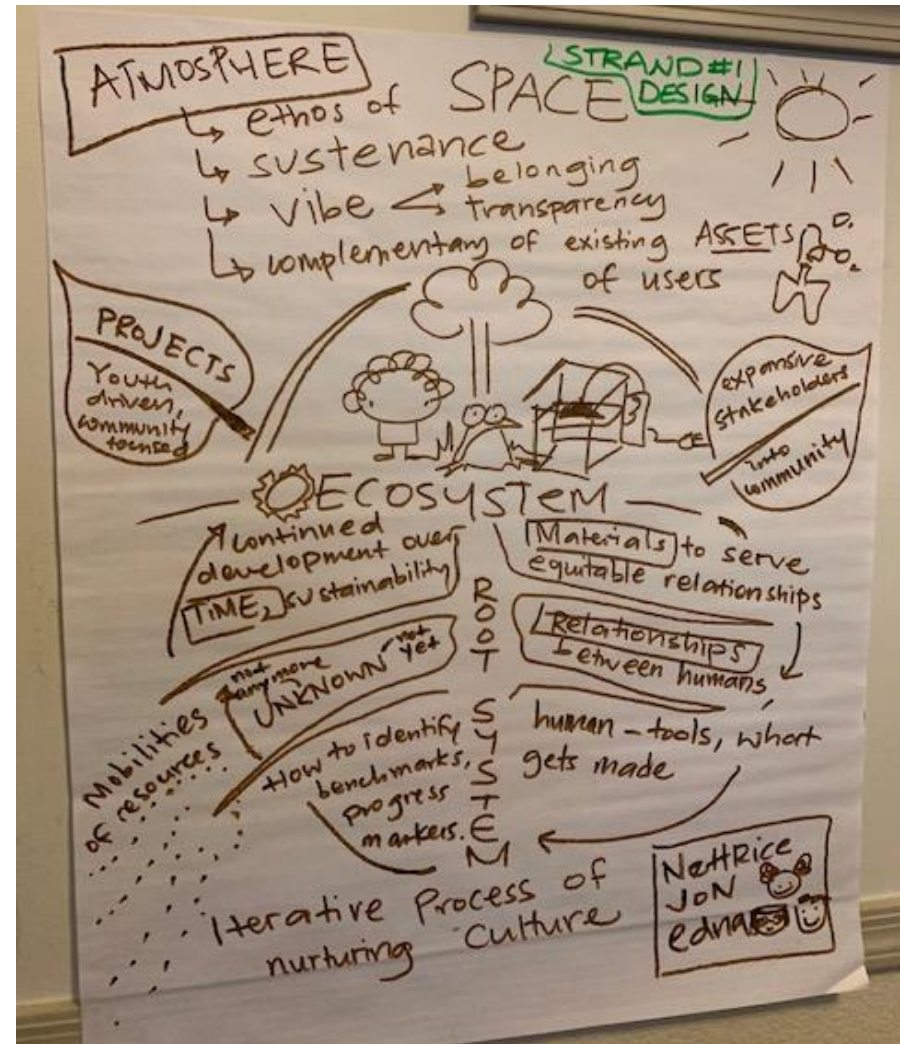 ATMOSPHERE
STRAND #1
DESIGN
↳ ethos of SPACE
↳ sustenance
↳ vibe < belonging
transparency
↳ complementary of existing ASSETS
of users
PROJECTS
Youth
driven,
community
focused
expansive
stakeholders
into
community
ECOSYSTEM
continued
development over
TIME, sustainability
Materials to serve
equitable relationships
ROOT SYSTEM
not
anymore
UNKNOWN - not
yet
Relationships
between humans
Mobilities
of resources
How to identify
benchmarks,
progress
markers.
human - tools, what
gets made
Iterative Process of
nurturing Culture
NettRice
JON
edna